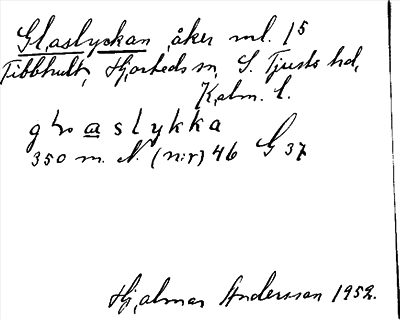 Glaslyckan, åker ml. 15
Tibbhult, Hjorteds sn, S. Tjusts hd,
Kalm. l.
glaslykka
350 m. N. (n:r) 46 G 37
Hjalmar Andersson 1952.